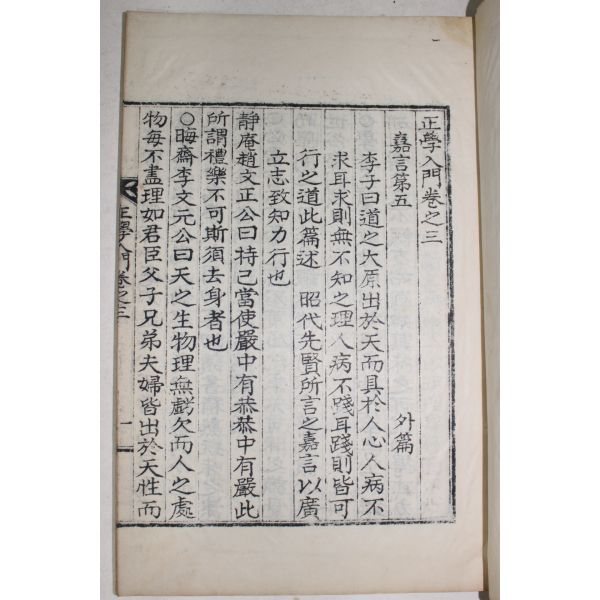 正學入門卷之三
嘉言第五　外篇
李子曰道之大原出於天而具於人心人病不
求耳求則無不知之理人病不踐耳踐則皆可
行之道此篇述　昭代先賢所言之嘉言以廣
立志致知力行也
靜庵趙文正公曰持己當使嚴中有恭恭中有嚴此
所謂禮樂不可斯須去身者也
○晦齋李文元公曰天之生物理無虧欠而人之處
物每不盡理如君臣父子兄弟夫婦皆出於天性而
正學入門卷之三　一